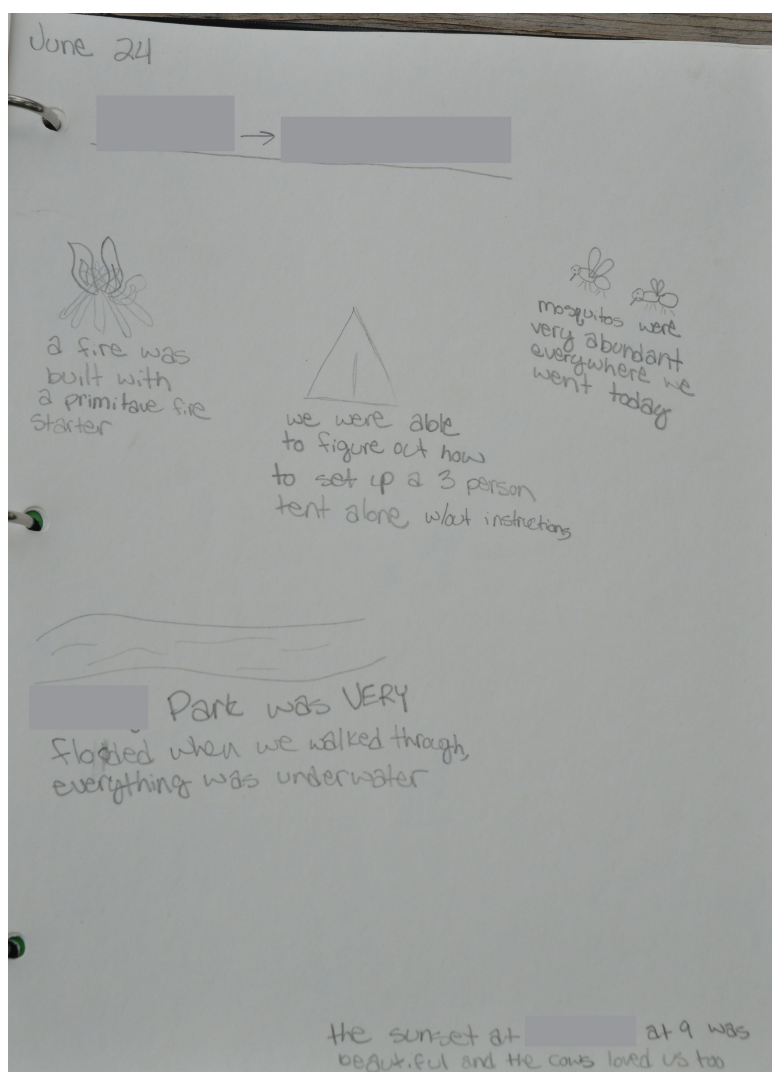 June 24
→
a fire was
built with
a primitave fire
starter
we were able
to figure out how
to set up a 3 person
tent alone w/out instructions
mosquitos were
very abundant
everywhere we
went today
Park was VERY
flooded when we walked through,
everything was underwater
the sunset at at 9 was
beautiful and the cows loved us too